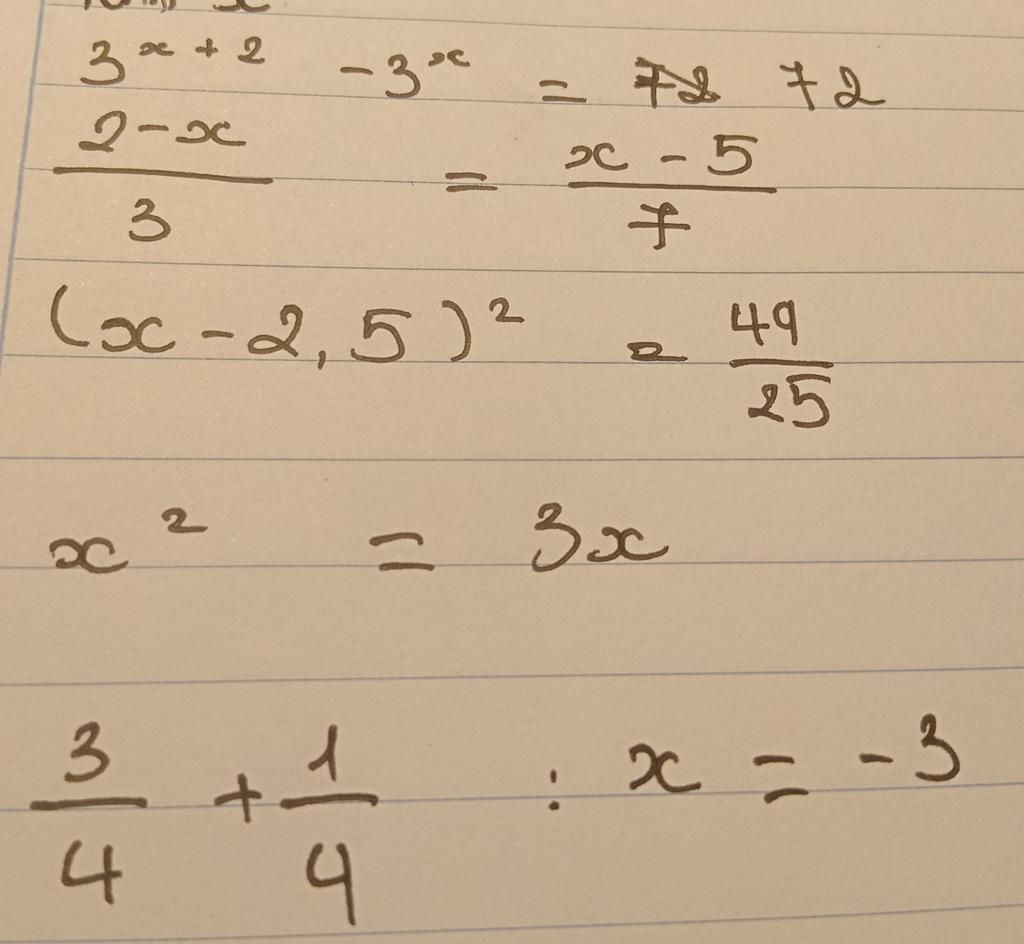 x
3^{x+2} - 3^x = 72
\frac{2-x}{3} = \frac{x-5}{7}
(x-2,5)^2 = \frac{49}{25}
x^2 = 3x
\frac{3}{4} + \frac{1}{4} : x = -3